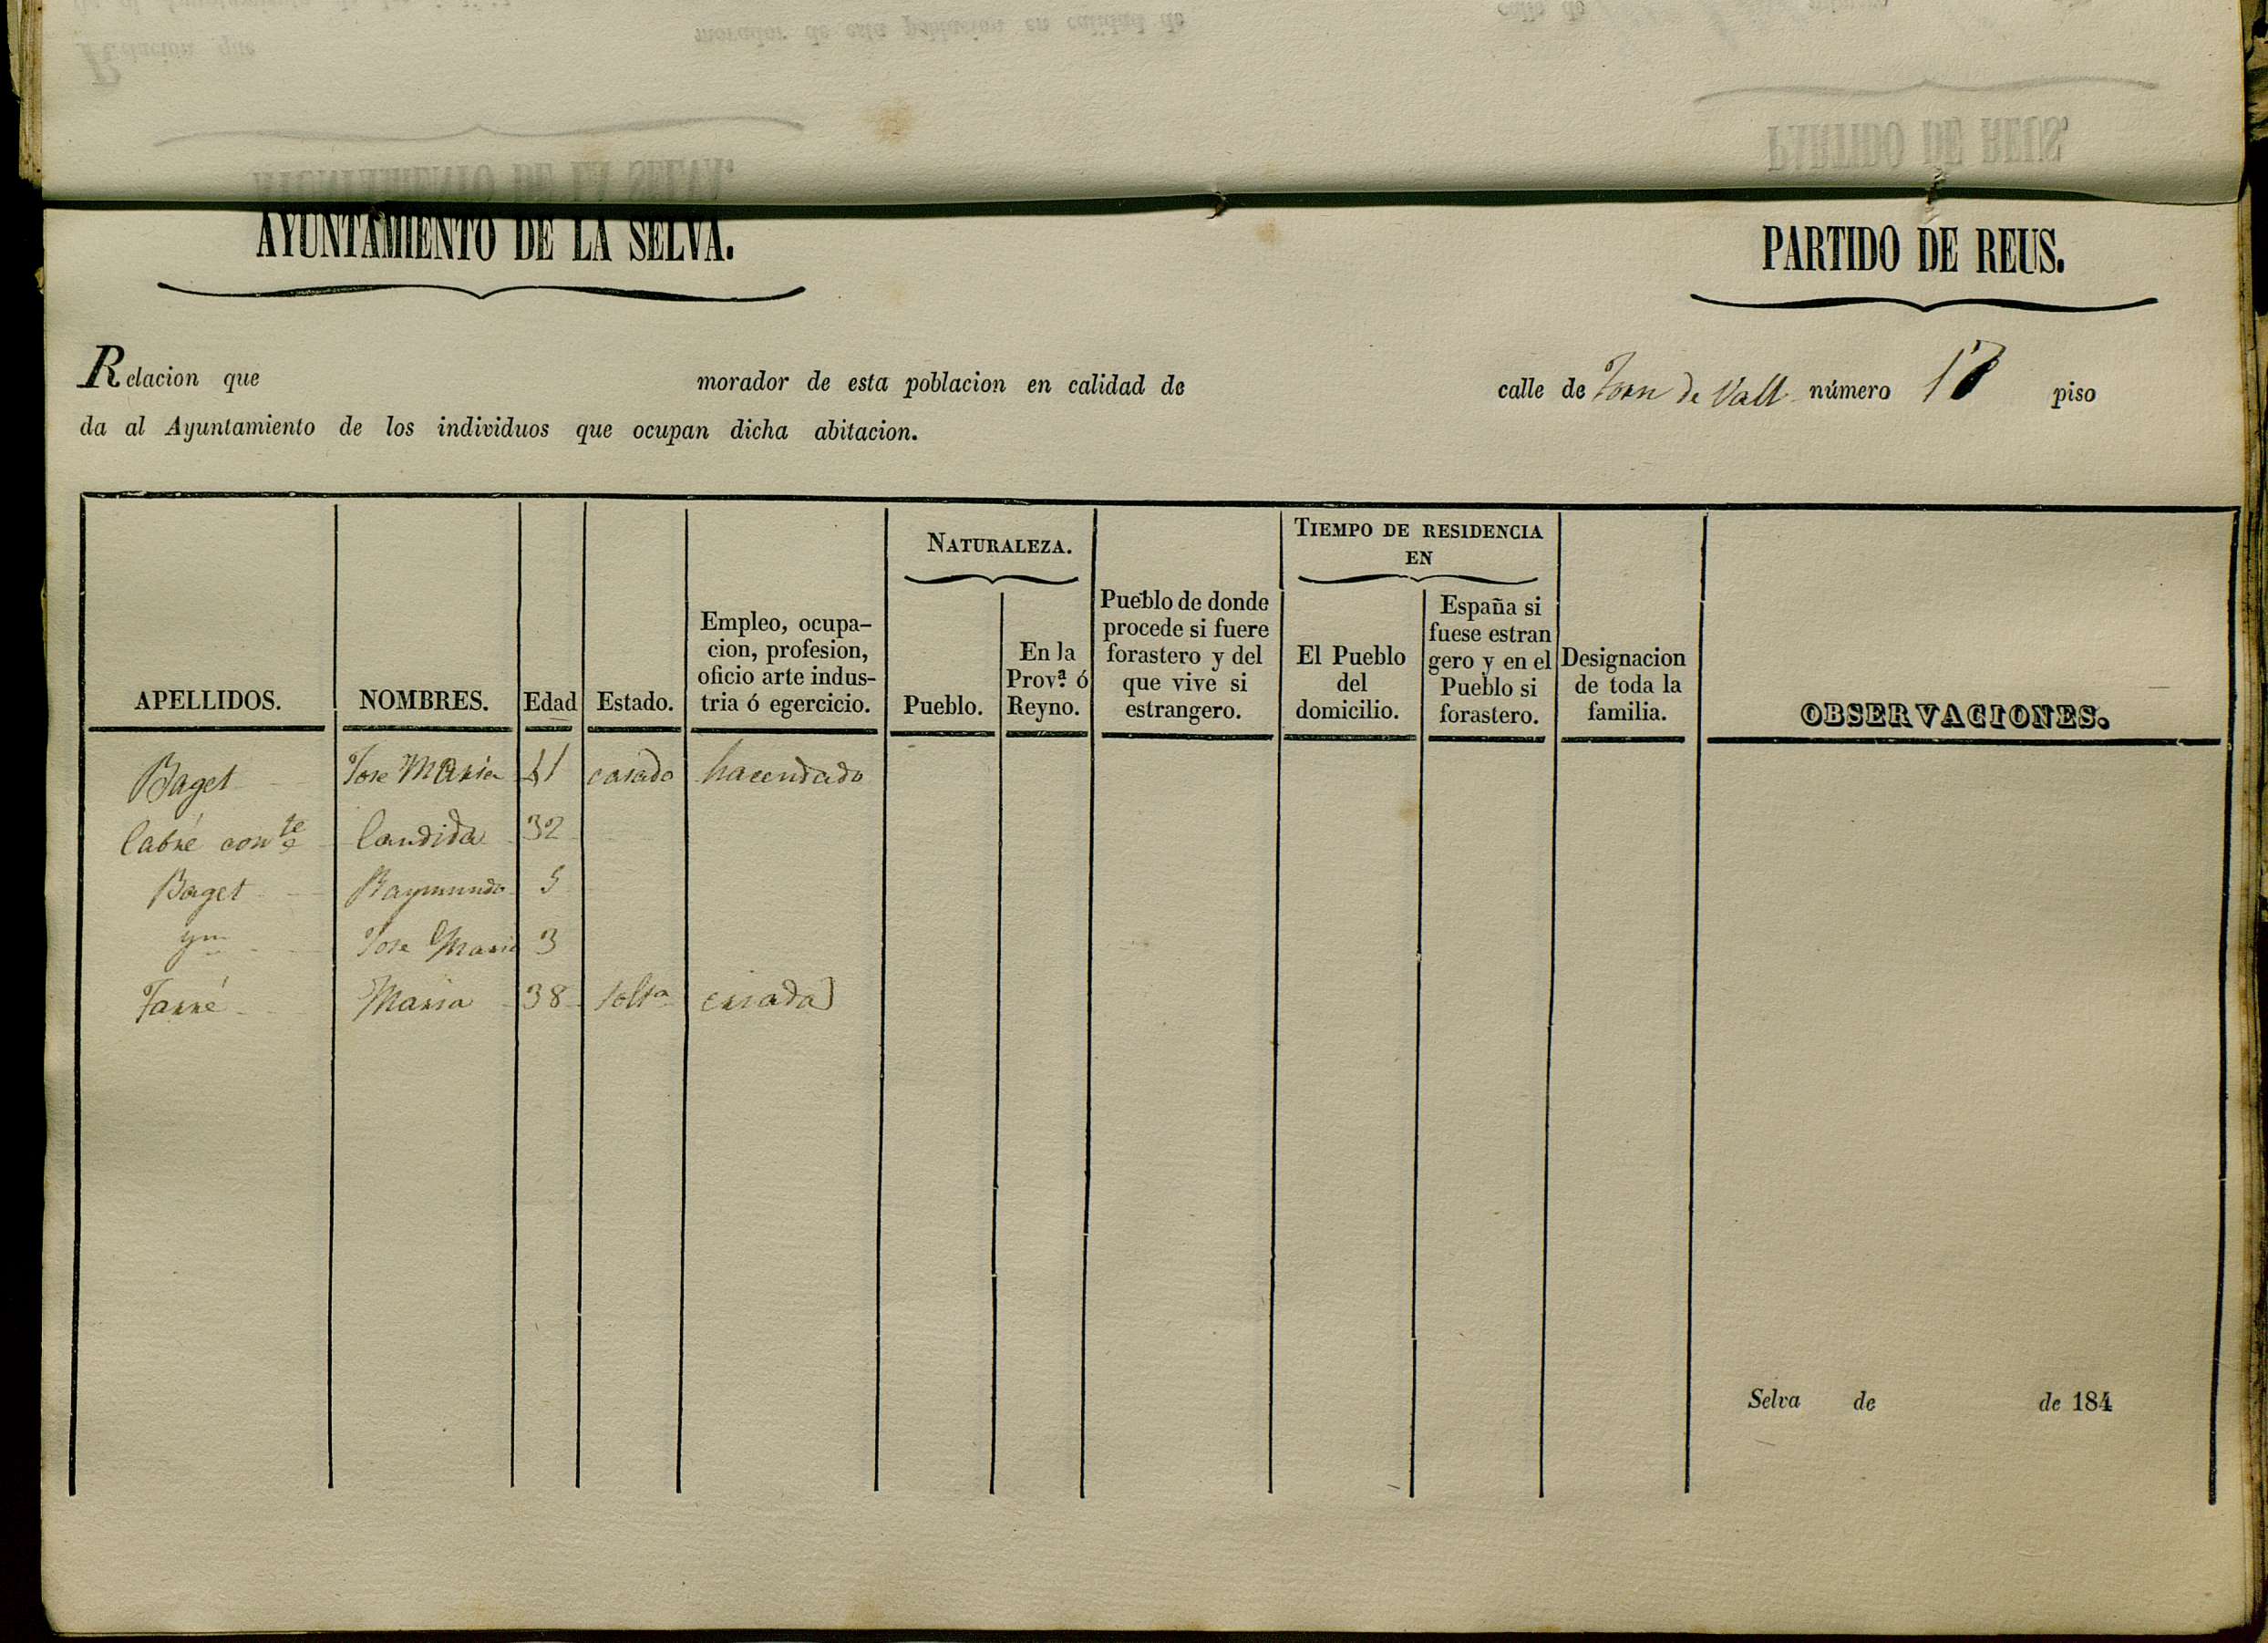 AYUNTAMIENTO DE LA SELVA.
PARTIDO DE REUS.
Relacion que morador de esta poblacion en calidad de calle de Forn de Vall número 17 piso
da al Ayuntamiento de los individuos que ocupan dicha abitacion.
NATURALEZA.
TIEMPO DE RESIDENCIA
EN
APELLIDOS.
NOMBRES.
Edad
Estado.
Empleo, ocupa-
cion, profesion,
oficio arte indus-
tria ó egercicio.
Pueblo.
En la
Prov.ª ó
Reyno.
Pueblo de donde
procede si fuere
forastero y del
que vive si
estrangero.
El Pueblo
del
domicilio.
España si
fuese estran
gero y en el
Pueblo si
forastero.
Designacion
de toda la
familia.
OBSERVACIONES.
Baget Jose Maria 41 casado hacendado
Cabré conte Candida 32
Baget Raymundo 5
ym Jose Maria 3
Farré Maria 38 solta criada
Selva de de 184